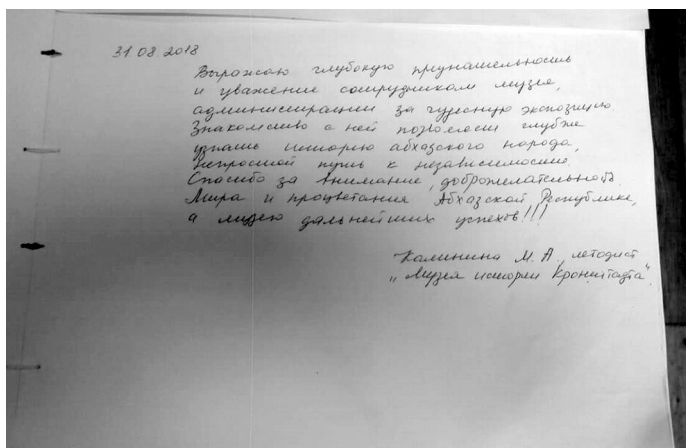 31.08.2018
Выражаю глубокую признательность
и уважение сотрудникам музея,
администрации за чудесную экспозицию.
Знакомство с ней позволило глубже
узнать историю абхазского народа,
непростой путь к независимости.
Спасибо за внимание, доброжелательность.
Мира и процветания Абхазской Республике,
а музею дальнейших успехов!!!
Калинина М. А., методист
„Музея истории Кронштадта“